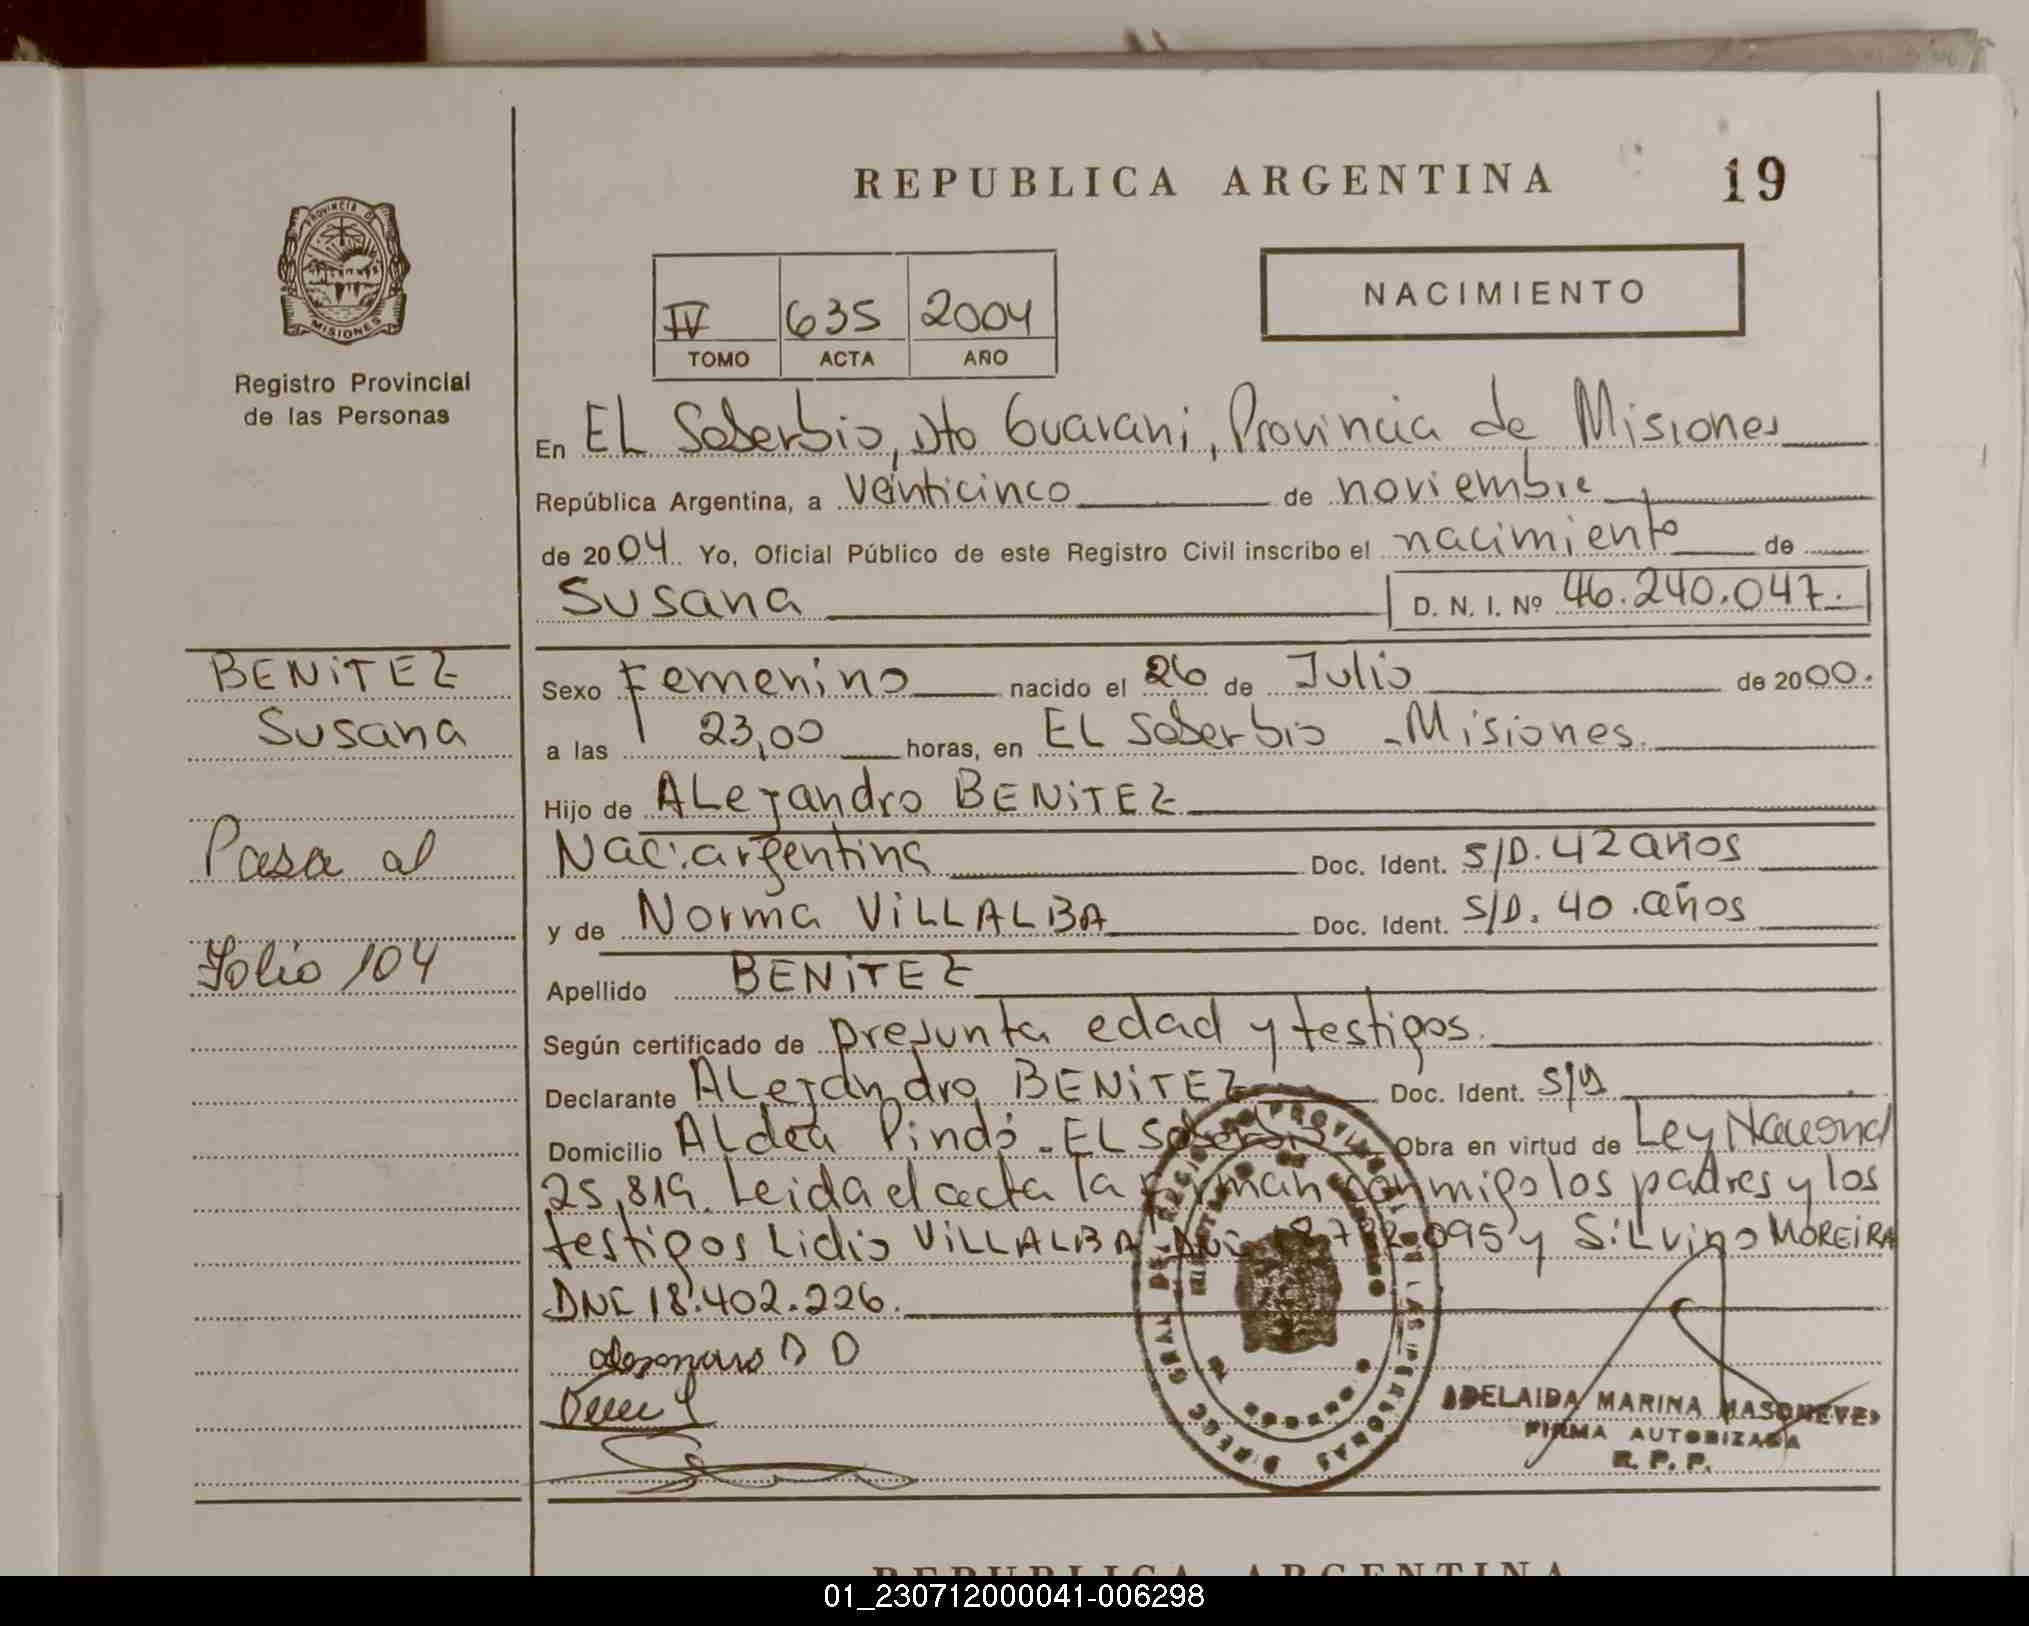 REPUBLICA ARGENTINA 19
PROVINCIA DE MISIONES
Registro Provincial
de las Personas
NACIMIENTO
IV 635 2004
TOMO ACTA AÑO
En EL Soberbio, Dto Guarani, Provincia de Misiones
República Argentina, a veinticinco de noviembre
de 2004 Yo, Oficial Público de este Registro Civil inscribo el nacimiento de
Susana D. N. I. Nº 46.240.047.
BENITEZ
Susana
Pasa al
Folio 104
Sexo Femenino nacido el 26 de Julio de 2000.
a las 23,00 horas, en EL Soberbio - Misiones.
Hijo de ALejandro BENITEZ
Nac. argentina Doc. Ident. S/D. 42 años
y de Norma VILLALBA Doc. Ident. S/D. 40 .años
Apellido BENITEZ
Según certificado de presunta edad y testigos.
Declarante ALejandro BENITEZ Doc. Ident. S/D
Domicilio ALdea Pindó - EL Soberbio Obra en virtud de Ley Nacional
25,819. Leida el acta la firman conmigo los padres y los
testigos Lidio VILLALBA DNI 18.782.095 y SiLvino MOREIRA
DNI 18.402.226.
DIREC. GRAL DEL REGISTRO PROVINCIAL DE LAS PERSONAS
ADELAIDA MARINA
FIRMA AUTORIZADA
R. P. P.
REPUBLICA ARGENTINA
01_230712000041-006298